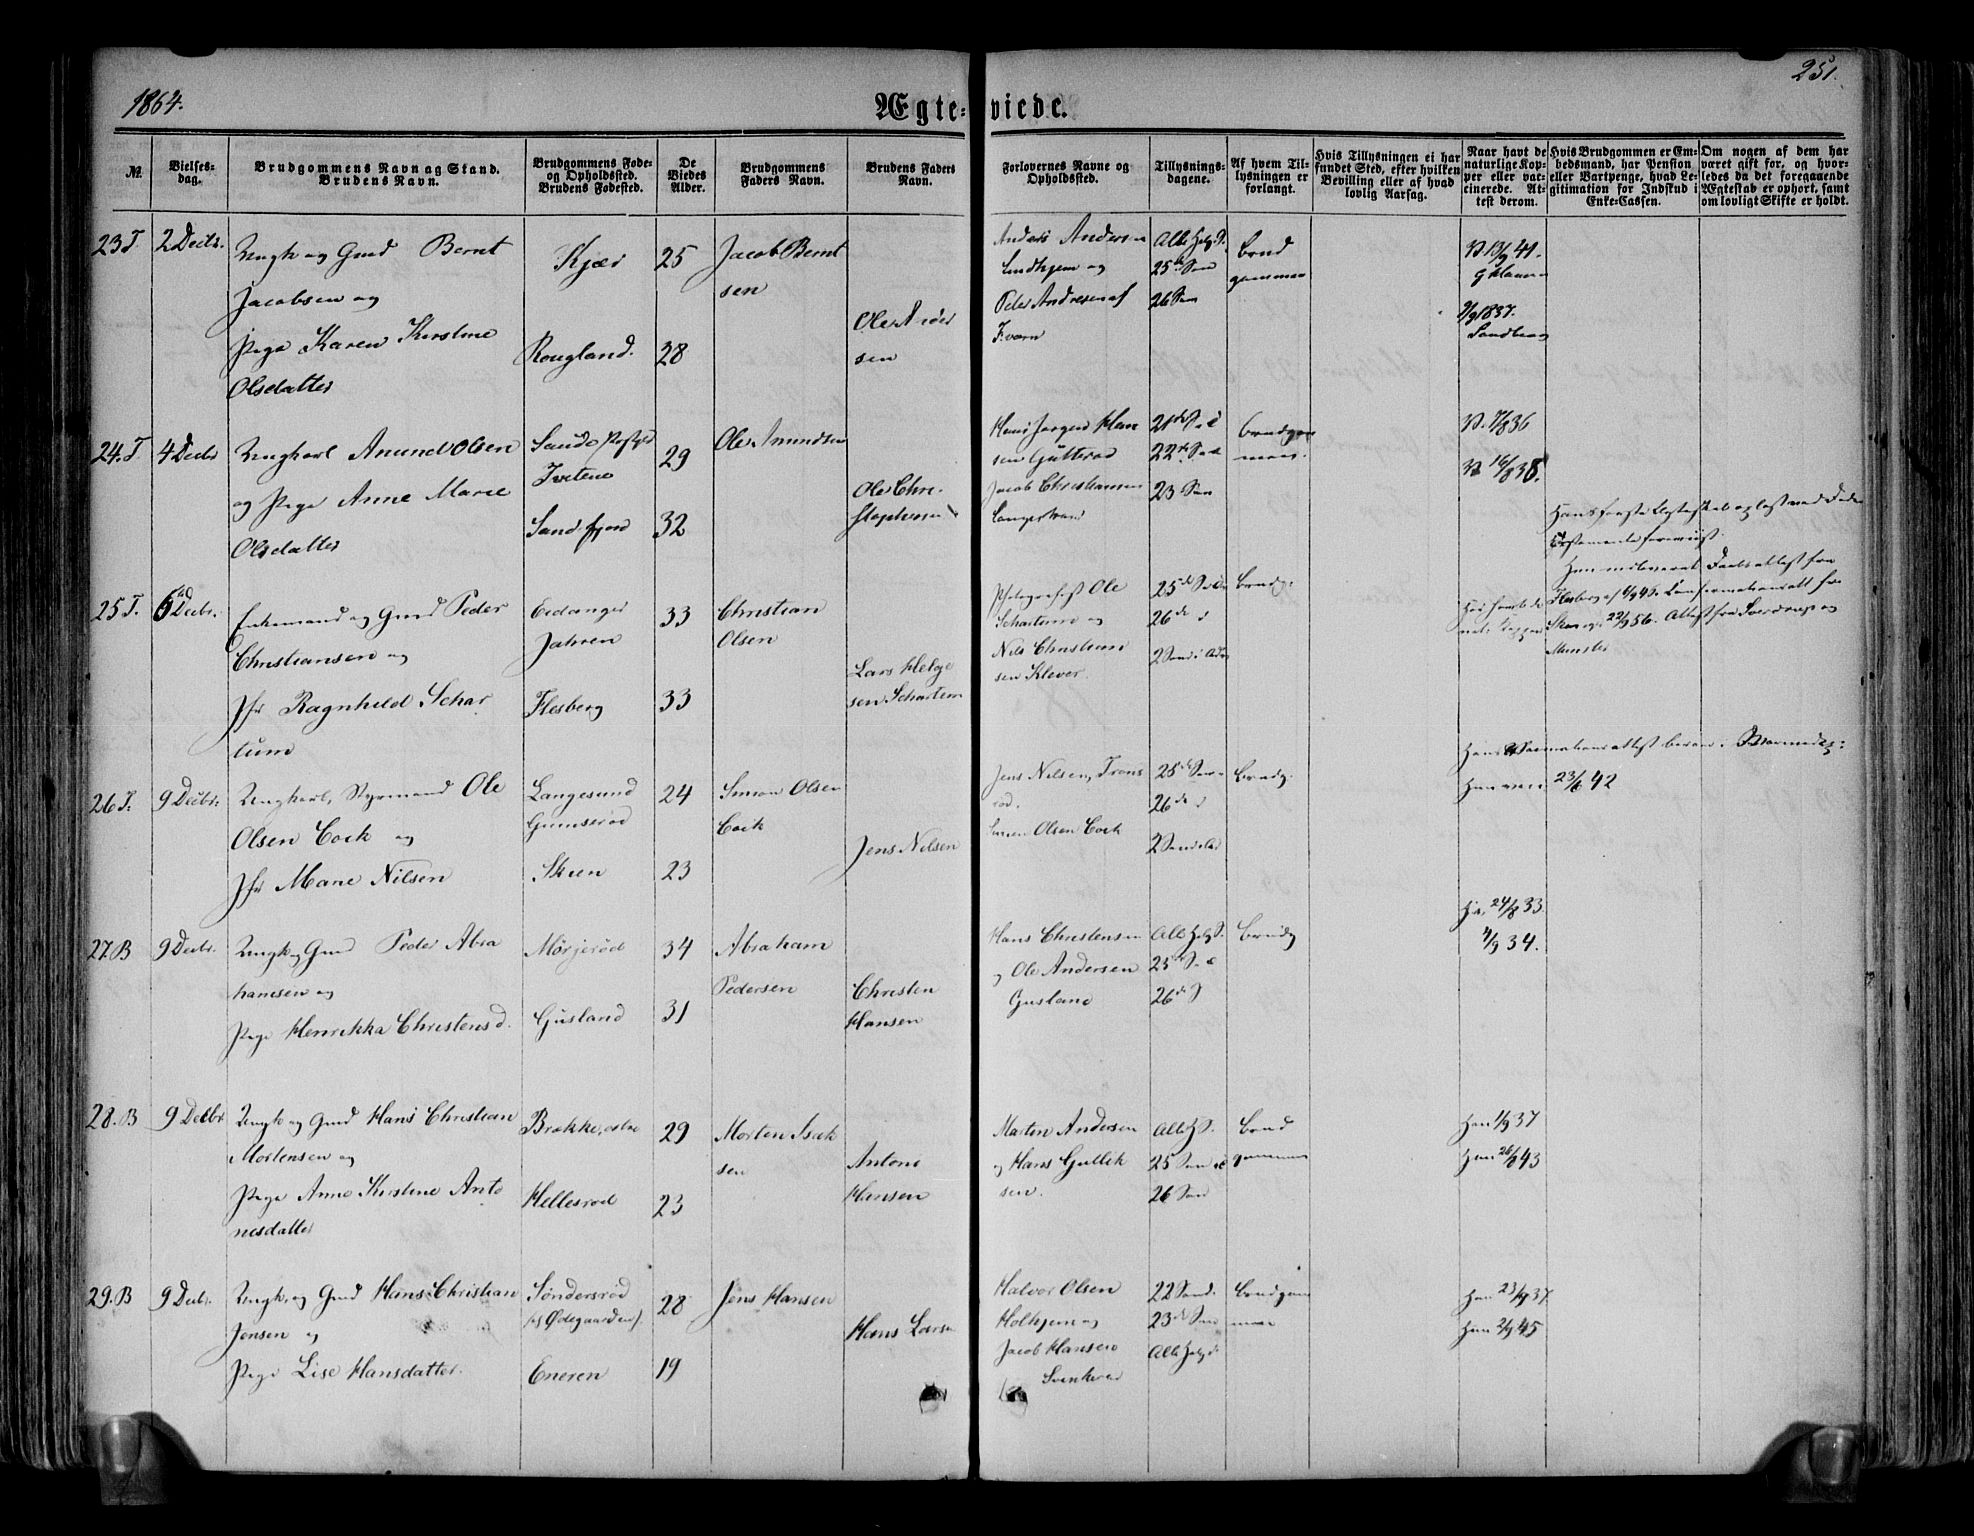 1864.
251.
Ægte-viede.
№.
Vielses-
dag.
Brudgommens Navn og Stand.
Brudens Navn.
Brudgommens Føde-
og Opholdssted.
Brudens Fødested.
De
Viedes
Alder.
Brudgommens
Faders Navn.
Brudens Faders
Navn.
Forlovernes Navne og
Opholdssted.
Tillysnings-
dagene.
Af hvem Til-
lysningen er
forlangt.
Hvis Tillysningen ei har
fundet Sted, efter hvilken
Bevilling eller af hvad
lovlig Aarsag.
Naar havt de
naturlige Kop-
per eller vac-
cinerede. At-
test derom.
Hvis Brudgommen er Em-
bedsmand, har Pension
eller Vartpenge, hvad Le-
gitimation for Indskud i
Enke-Cassen.
Om nogen af dem har
været gift før, og hvor-
ledes da det foregaaende
Ægteskab er ophørt, samt
om lovligt Skifte er holdt.
23 T. 2 Decbr.
Ungk og Gmd Bernt
Jacobsen og
Pige Karen Kirstine
Olsdatter
Kjær
Rougland.
25
28
Jacob Bernt
sen
Ole Ander
sen
Anders Andersen
Lindhjem og
Peder Andresen af
Kvarn
Alle Helg. D.
25de Søn
26 Søn
Brud
gommen
V. 13/9 41.
9/9 1837.
Sandberg
24. T. 4 Decbr
Ungkarl Anund Olsen
og Pige Anne Marie
Olsdatter
Tvetene
Sandefjord
29
32
Ole Amundsen
Ole Chri-
stophersen
Hans Jørgen Han
sen Gutterød
Jacob Christiansen
Langestrand
21de Sød
22de Sød
23 Søn
Brudgom
men.
V. 7/8 36
V. 16/8 38.
25 T. 6 Decbr.
Enkemand og Gmd Peder
Christiansen og
Jfr Ragnhild Schar
tum
Eidanger
Jahren
Flesberg
33
33
Christian
Olsen
Lars Helge
sen Schartum
Ole
Schartum og
Nils Christian
sen Klever.
25de
26de
2 Sønd i Adv
Brudg.
Hans første Ægteskab opløst ved Døden
26 T. 9 Decbr.
Ungkarl, Styrmand Ole
Olsen Cock og
Jfr Marie Nilsen
Langesund
Gumserød
Skien
24
23
Simon Olsen
Cock
Jens Nilsen
Jens Nilsen,
Simon Olsen Cock
25de
26de
Brudg.
23/6 42
27. B 9 Decbr.
Ungk og Gmd Peder Abra
hamsen og
Pige Henrikka Christensd.
Mørjerød
Gusland
34
31
Abraham
Pedersen
Christen
Hansen
Hans Christensen
og Ole Andersen
Gusland
Alle Helg D.
25de
26de S
Brudg
24/8 33
4/9 34.
28. B 9 Decbr
Ungk og Gmd Hans Christian
Mortensen og
Pige Anne Kirstine Anto
nesdatter
Brække, østre
Hellesrød
29
23
Morten Isak
sen
Antone
Hansen
Marten Andersen
og Hans Gullik
sen.
Alle H D.
25 Søn
26 Søn
Brud
gommen
Han 1/9 37
Hun 26/8 43
29. B 9 Decbr.
Ungk. og Gmd Hans Christian
Jensen og
Pige Lise Hansdatter.
Søndersrød
(Ødegaarden).
Eneren
28
19
Jens Hansen
Hans Larsen
Halvor Olsen
Holhjem og
Jacob Hansen
Svinkerød
22 Sønd.
23de Søn
Alle Helg d.
Brudgom
men
Han 23/9 37
Hun 2/9 45